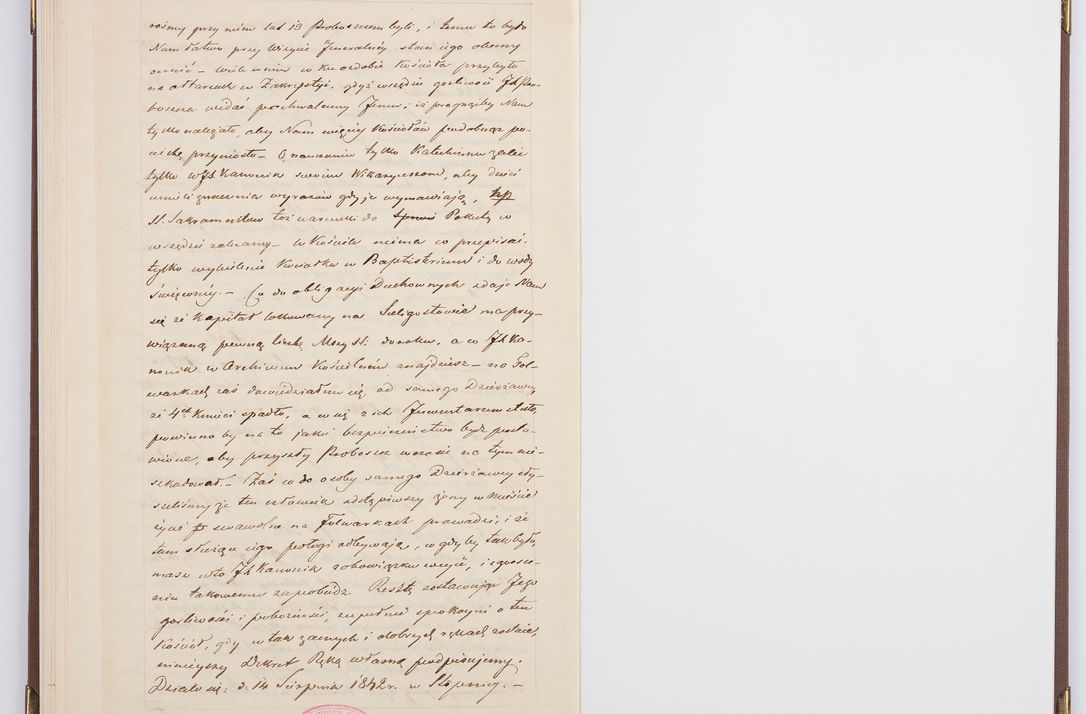 rośmy przy niem lat 13 Proboszczem byli, i temu to było
Nam łatwo przy Wizycie Jeneralnéj stan iego obecny
ocenić – wiele w ozdobie Kościoła przybyło
na ołtarzach w Zakrystyi, gdyż wszędzie gorliwość JX Pro-
boszcza widać pochwalamy Jemu, iż pragnąćby Nam
tylko należało, aby Nam więcéj Kościołów podobną po-
ciechę przyniosło – O nauczaniu tylko Katechizmu zaleci
tylko WJX Kanonik swoim Wikaryuszom, aby dzieci
umieli znaczenia wyrazów gdy je wymawiają,
SS. Sakramentów też warunki do Pokuty w
wszędzie zalecamy – w Kościele niema co przepisać
tylko wybielenie Kociołka w Baptisterium i do wody
święconéj. – Co do obligacyi Duchownych zdaje Nam
się że Kapitał lokowany na Seligostowie ma przy-
wiązaną pewną liczbę Mszy SS. do roku, a co JX Ka-
nonik w Archivum Kościelném znajdziesz – na Fol-
warkach zaś dowiedziałem się od samego Dzierżawcy
że 4ch Kmieci spadło, a co się z ich Inwentarzem stało,
powinno by na to jakie bezpieczeństwo bydź posta-
wione, aby przyszły Proboszcz wczasie na tym nie
szkodował. – Zaś co do osoby samego Dzierżawcy sły-
szeliśmy że ten człowiek odstąpiwszy żony w mieście
życie swawolne na Folwarkach prowadzi, i że
tam służące iego połogi odbywają, co gdyby tak było,
masz w to JX Kanonik z obowiązku wejść, i zgorsze-
niu takowemu zapobiedz. Resztę zostawując Jego
gorliwości i pobożności, zupełnie spokojni o ten
Kościół, gdy w tak zacnych i dobrych rękach zostaie,
niniejszy Dekret Ręką własną podpisujemy.
Działo się: d. 14 Sierpnia 1842 r. w Stopnicy. –